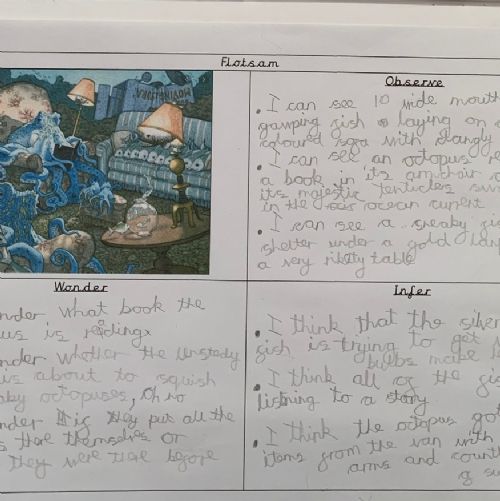 Flotsam
MOVING & STORA
Observe
I can see 10 wide mouth
gawping fish laying on a
coloured sofa with dangly
I can see an octopus
a book in its armchair
its majestic tenticles
in the ocean current
I can see a sneaky fis
shelter under a gold lam
a very rikity table
Wonder
nder what book the
us is reading
nder whether the unstady
is about to squish
by octopuses, Oh no
nder if they put all the
s there themselves or
they were there before
Infer
I think that the silver
fish is trying to get
bulbs make
I think all of the fis
listning to a story
I think the octopus got
items from the van with
arms and count